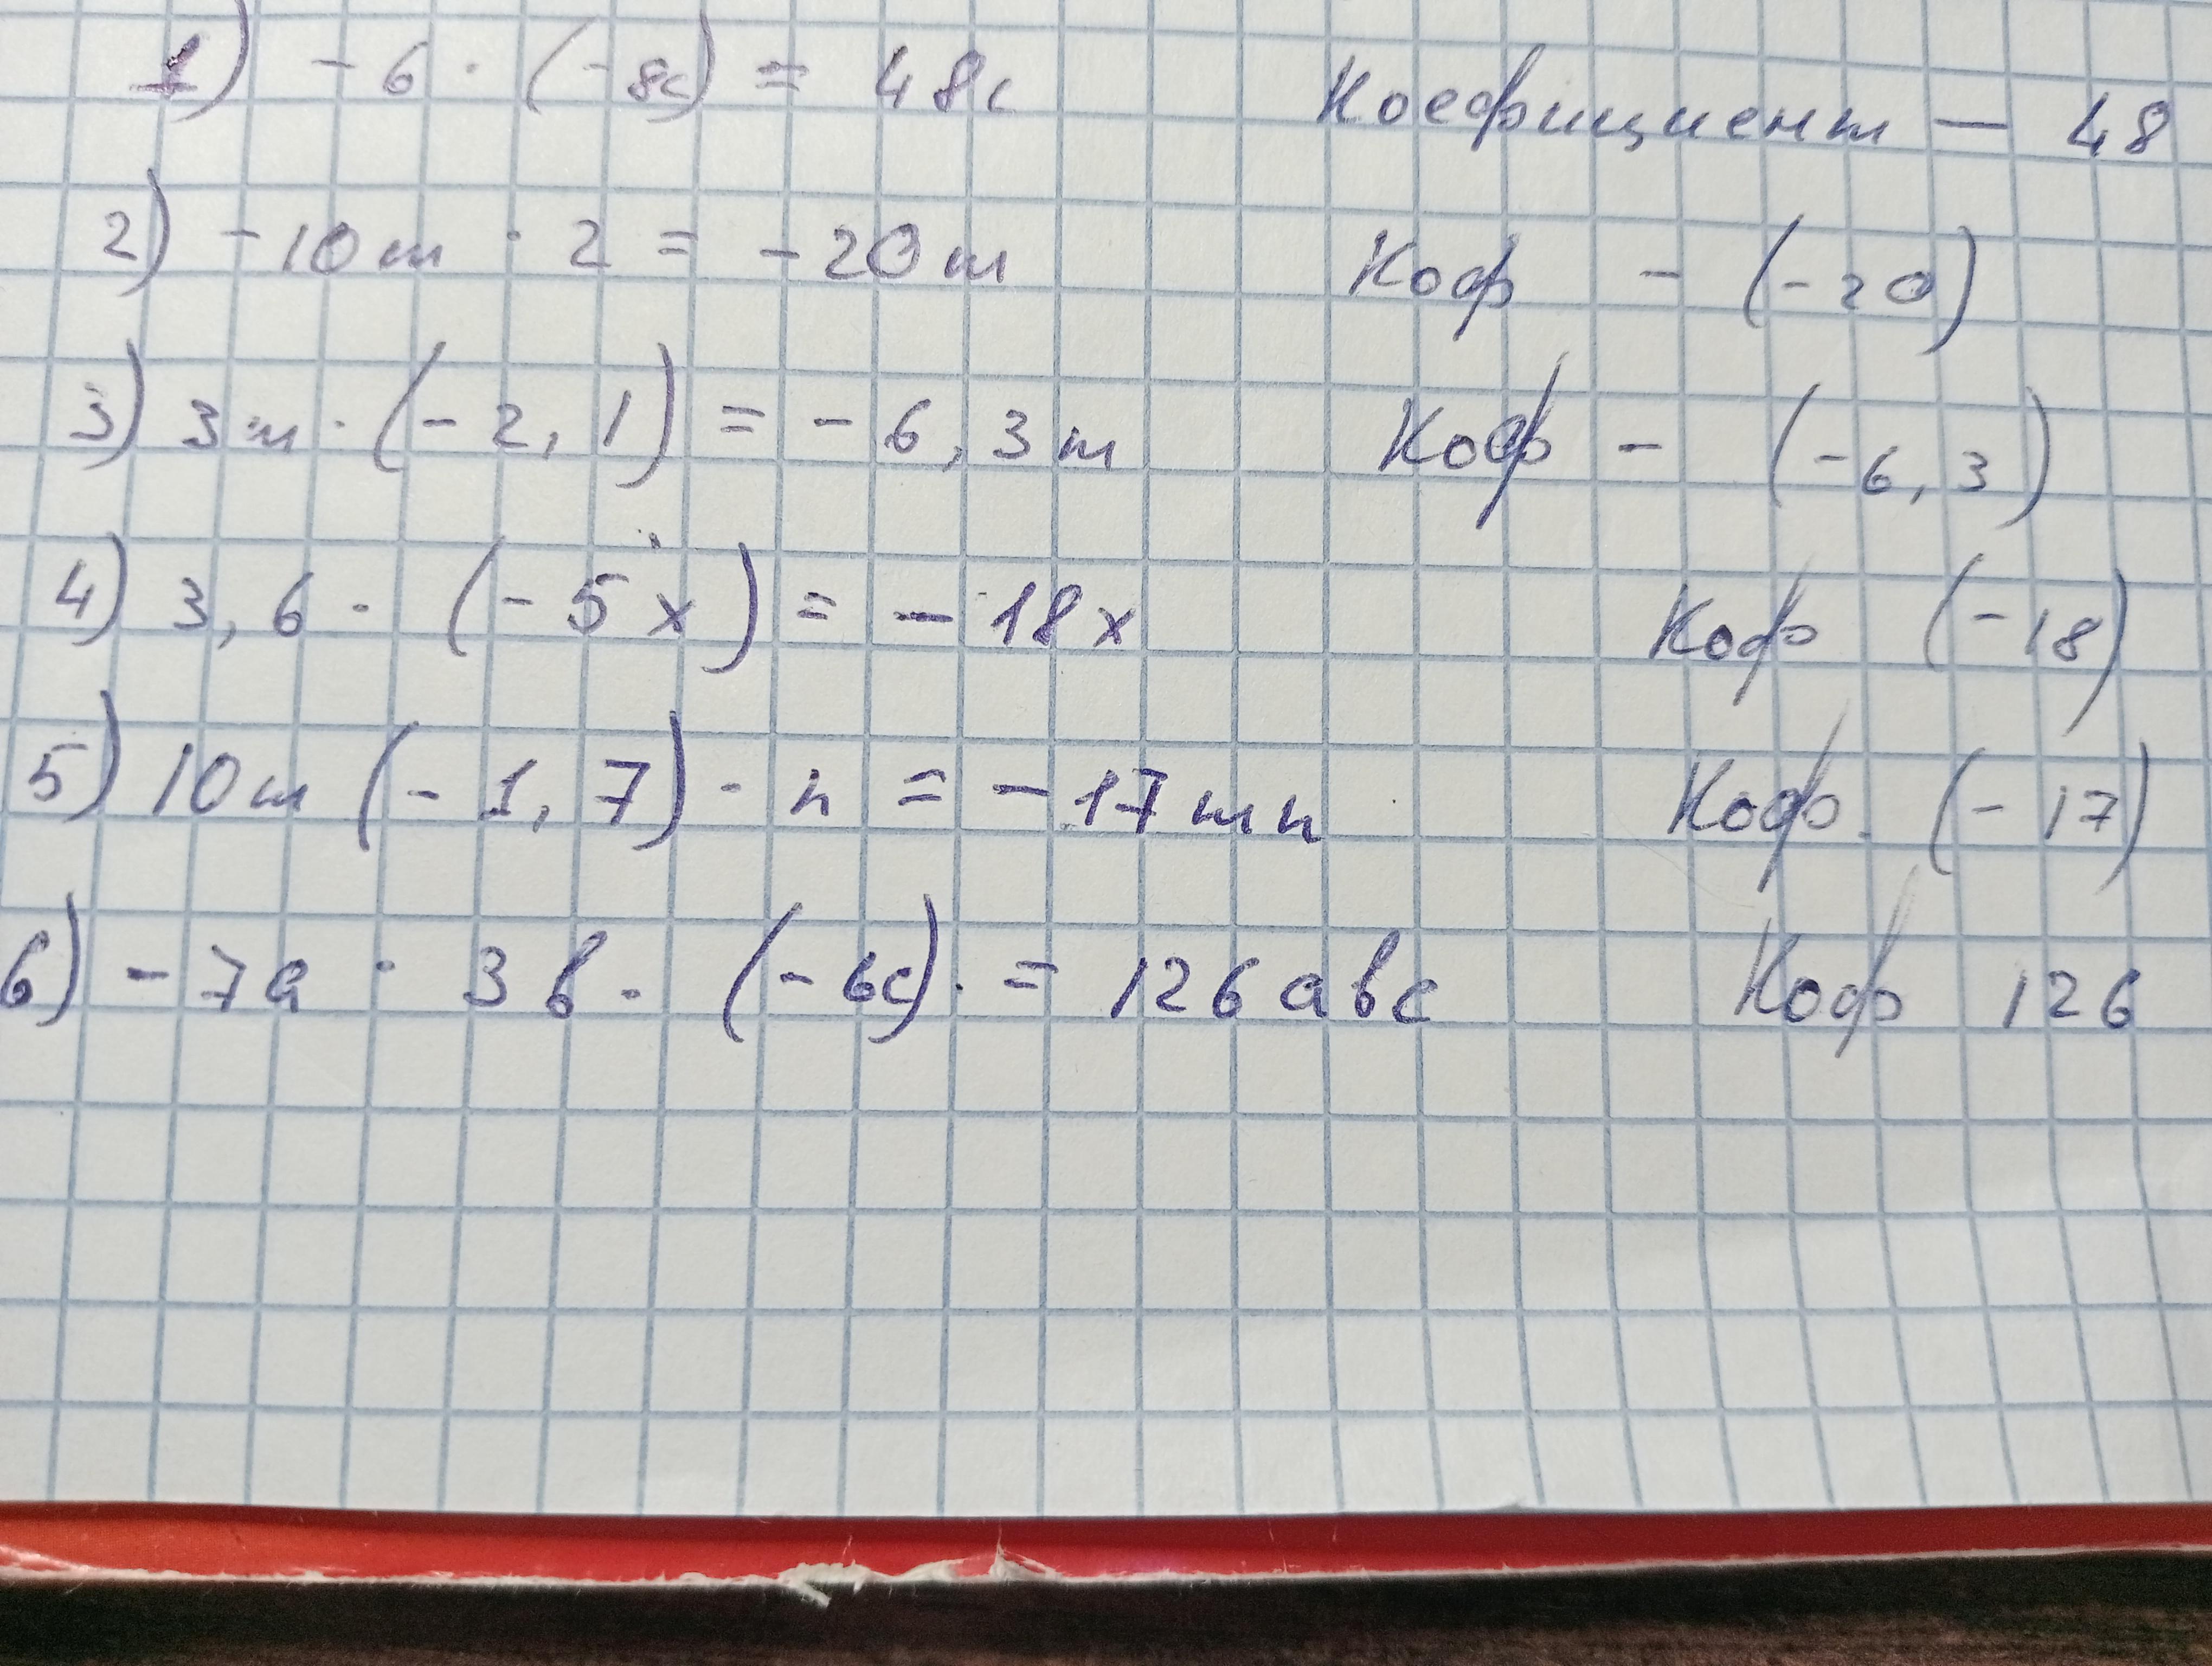 1) -6 · (-8c) = 48c Коефициент — 48
2) -10m · 2 = -20m Коф - (-20)
3) 3m · (-2,1) = -6,3m Коф - (-6,3)
4) 3,6 · (-5x) = -18x Коф (-18)
5) 10m (-1,7) · n = -17mn Коф. (-17)
6) -7a · 3b · (-6c) · = 126abc Коф 126